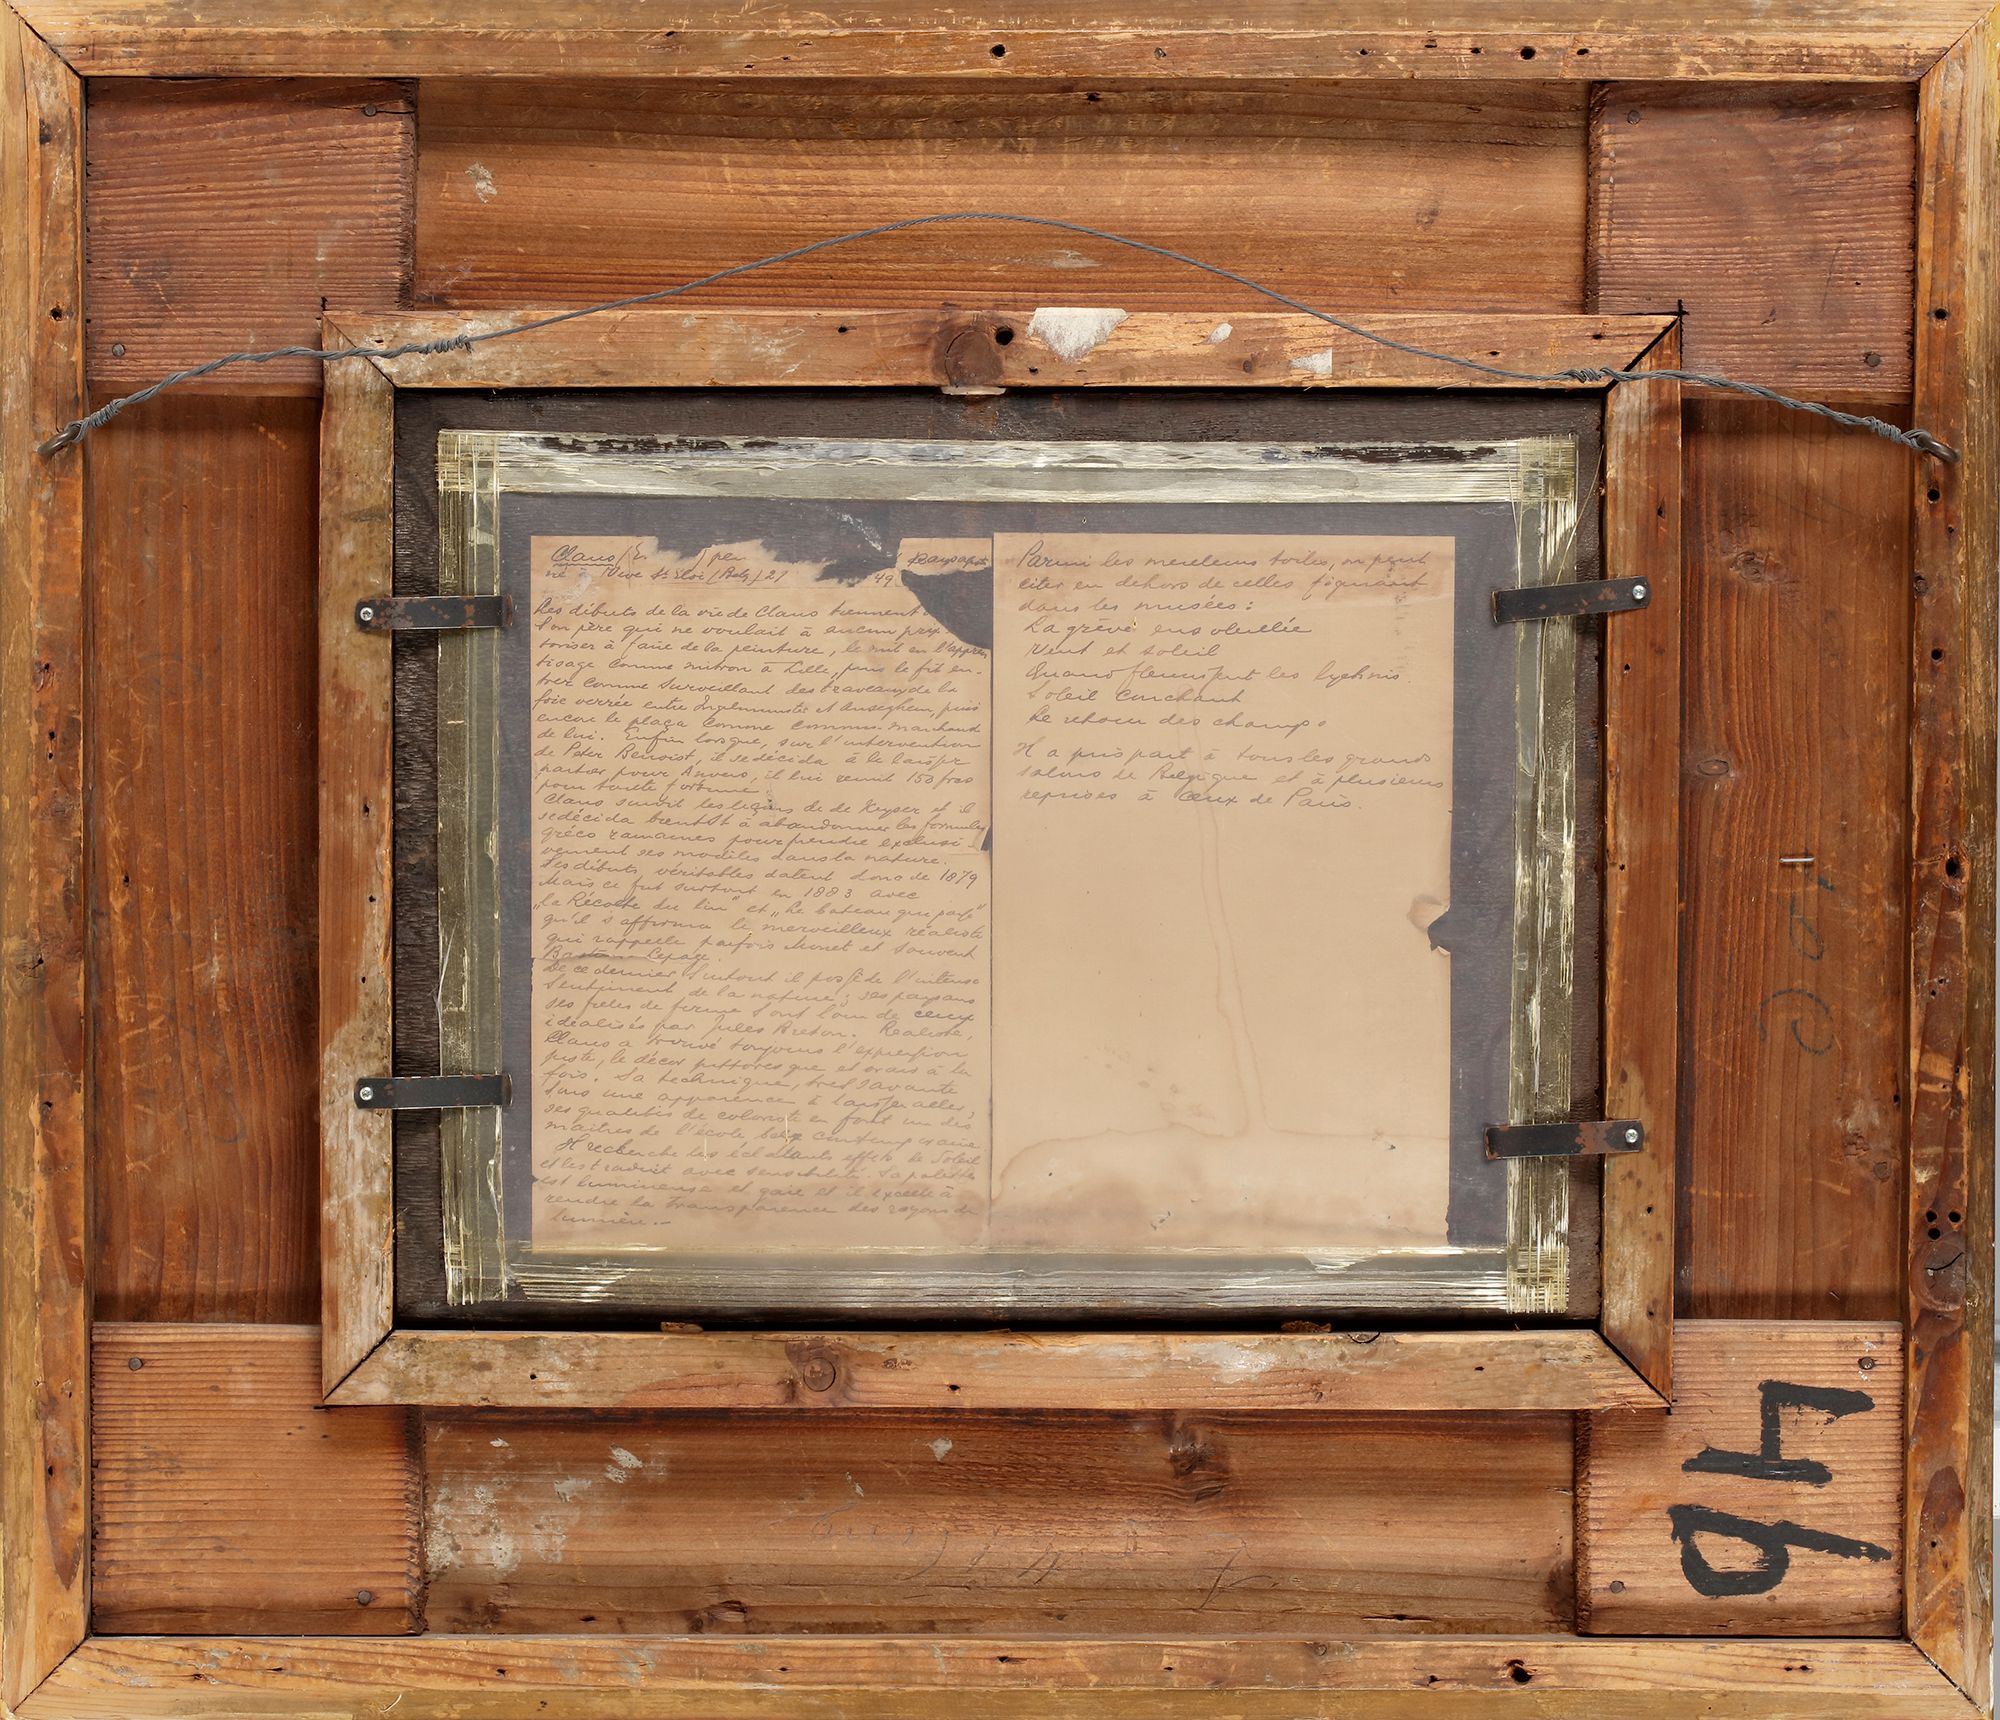 Claus
né à Vive St Eloi (Belg) 27 49
Les débuts de la vie de Claus tiennent
Son père qui ne voulait à aucun prix
toriser à faire de la peinture, le mit en l'appren
tisage comme mitron à Lille, puis le fit en-
trer comme surveillant des travaux de la
foie verrée entre Ingelmunster et Anseghem, puis
encore le plaça comme commis marchand
de lin. Enfin lorsque, sur l'intervention
de Peter Benoist, il se décida à le laisser
partir pour Anvers, il lui remit 150 frcs
pour toute fortune
Claus suivit les leçons de de Keyser et il
se décida bientôt à abandonner les formules
gréco romaines pour prendre exclusi-
vement ses modèles dans la nature.
Ses débuts véritables datent donc de 1879
Mais ce fut surtout en 1883 avec
„la Récolte du lin" et „Le bateau qui passe"
qu'il s'affirma le merveilleux réaliste
qui rappelle parfois Monet et souvent
Bastien Lepage.
De ce dernier surtout il possède l'intense
sentiment de la nature; ses paysans
ses filles de ferme sont loin de ceux
idéalisés par Jules Breton. Réaliste,
Claus a trouvé toujours l'expression
juste, le décor pittoresque et vrais à la
fois. Sa technique, très savante
sous une apparence de laisser aller,
ses qualités de coloriste en font un des
maîtres de l'école belge contemporaine
Il recherche les éclatants effets de Soleil
et les traduit avec sensibilité. Sa palette
est lumineuse et gaie et il excelle à
rendre la transparence des rayons de
lumière.-
Parmi les meilleurs toiles, on peut
citer en dehors de celles figurant
dans les musées:
La grève ensoleillée
Vent et soleil
Quand fleurissent les lychnis.
Soleil couchant
Le retour des champs
Il a pris part à tous les grands
salons de Belgique et à plusieurs
reprises à ceux de Paris.